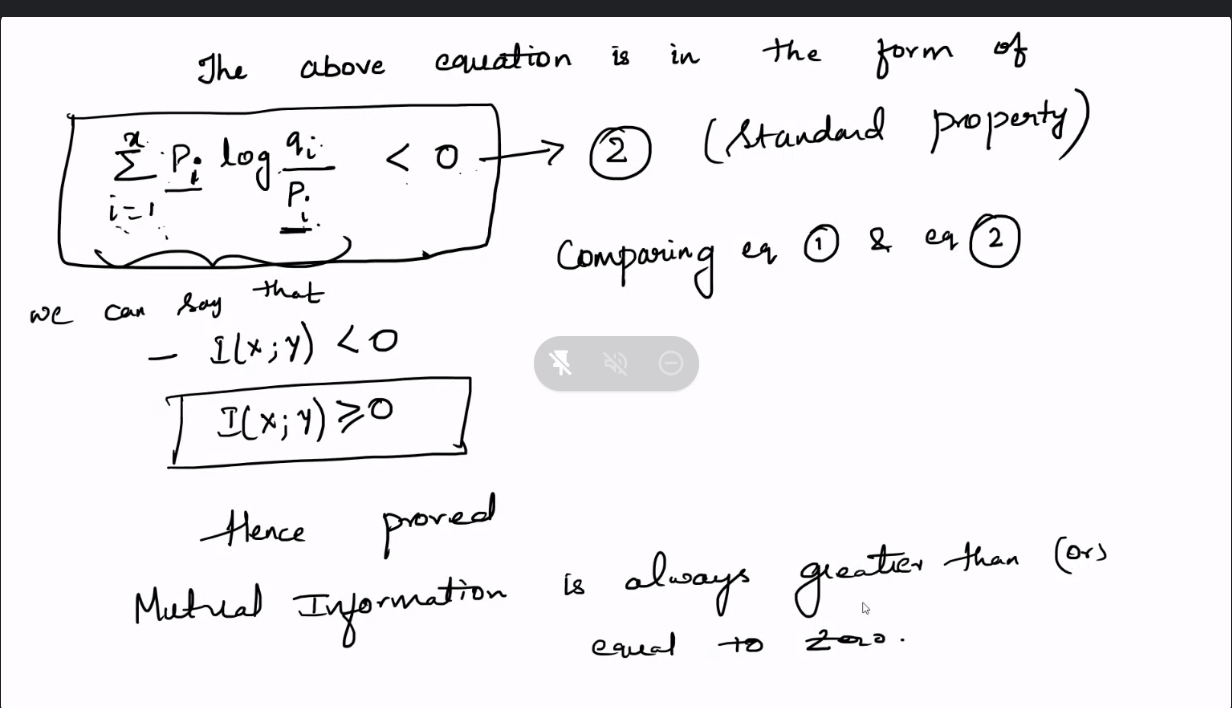 The above equation is in the form of
n
∑ Pᵢ log qᵢ/Pᵢ < 0 → ② (Standard property)
i=1
Comparing eq ① & eq ②
we can say that
– I(x;y) < 0
I(x;y) ⩾ 0
Hence proved
Mutual Information is always greatier than (or)
equal to zero.